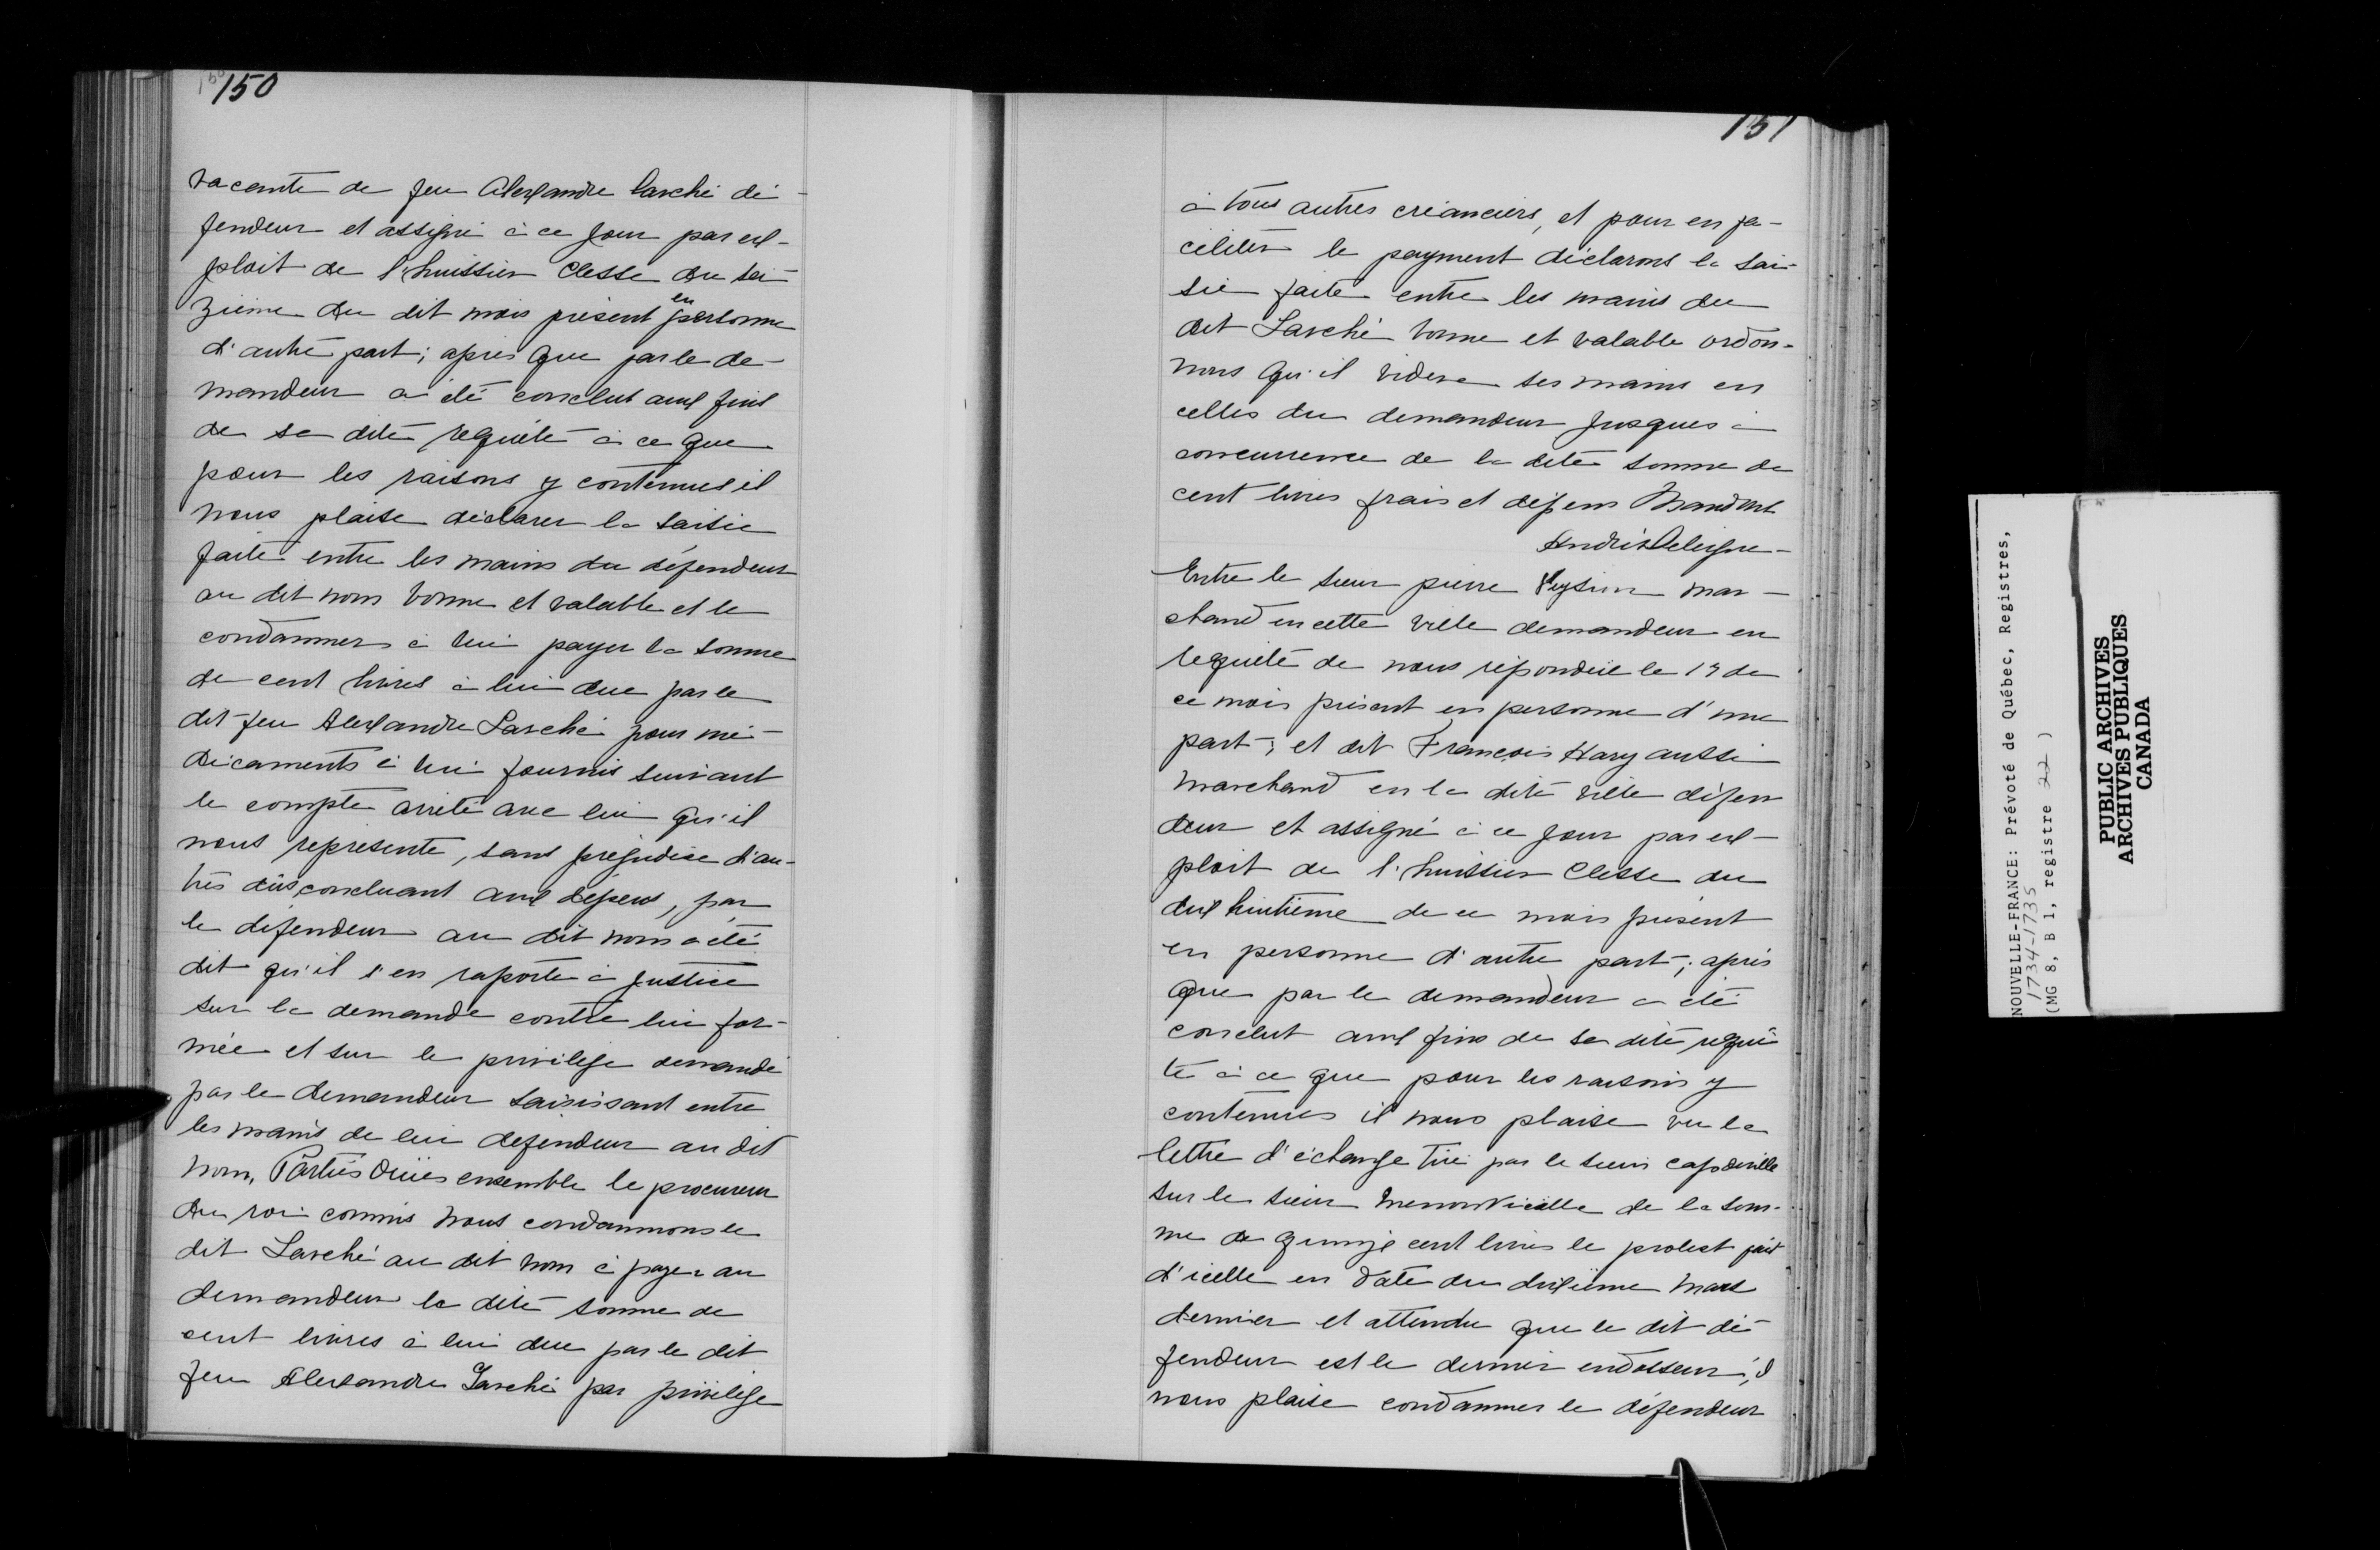 150
vacante de feu Alexandre Larché dé-
fendeur et assigné à ce jour par ex-
ploit de l'huissier Clesse du sei-
zième du dit mois présent en personne
d'autre part; après que par le de-
mandeur a été conclut aux fins
de sa dite requête à ce que
pour les raisons y contenues il
nous plaise déclarer la saisie
faite entre les mains du défendeur
au dit nom bonne et valable et le
condamner à lui payer la somme
de cent livres à lui due par le
dit feu Alexandre Larché pour mé-
dicaments à lui fournis suivant
le compte arrêté avec lui qu'il
nous représente, sans préjudice d'au-
tres dûs concluant aux dépens, par
le défendeur au dit nom a été
dit qu'il s'en raporte à justice
sur la demande contre lui for-
mée et sur le privilège demandé
par le demandeur saisissant entre
les mains de lui defendeur au dit
nom, Parties ouïes ensemble le procureur
du roi commis nous condamnons le
dit Larché au dit nom à payer au
demandeur la dite somme de
cent livres à lui due par le dit
feu Alexandre Larché par privilège
151
à tous autres créanciers, et pour en fa-
ciliter le payment déclarons la sai-
sie faite entre les mains du
dit Larché bonne et valable ordon-
nons qu'il videra ses mains en
celles du demandeur jusques à
concurrence de la dite somme de
cent livres frais et dépens Mandons
André Deleigne-
Entre le sieur pierre mar-
chand en cette ville demandeur en
requête de nous répondue le 19 de
ce mois présent en personne d'une
part; et dit François Hary aussi
marchand en la dite ville défen
deur et assigné à ce jour par ex-
ploit de l'huissier Clesse du
dix huitième de ce mois présent
en personne d'autre part; après
que par le demandeur a été
conclut aux fins de sa dite requê
te à ce que pour les raisons y
contenues il nous plaise vu la
lettre d'échange tiré par le sieur capdeville
sur le sieur de la som-
me de quinze cent livres le protest fait
d'icelle en date du dixième mars
dernier et attendu que le dit dé-
fendeur est le dernier endosseur, il
nous plaise condamner le défendeur
NOUVELLE-FRANCE: Prévoté de Québec, Registres,
1734-1735
(MG 8, B 1, registre 22 )
PUBLIC ARCHIVES
ARCHIVES PUBLIQUES
CANADA